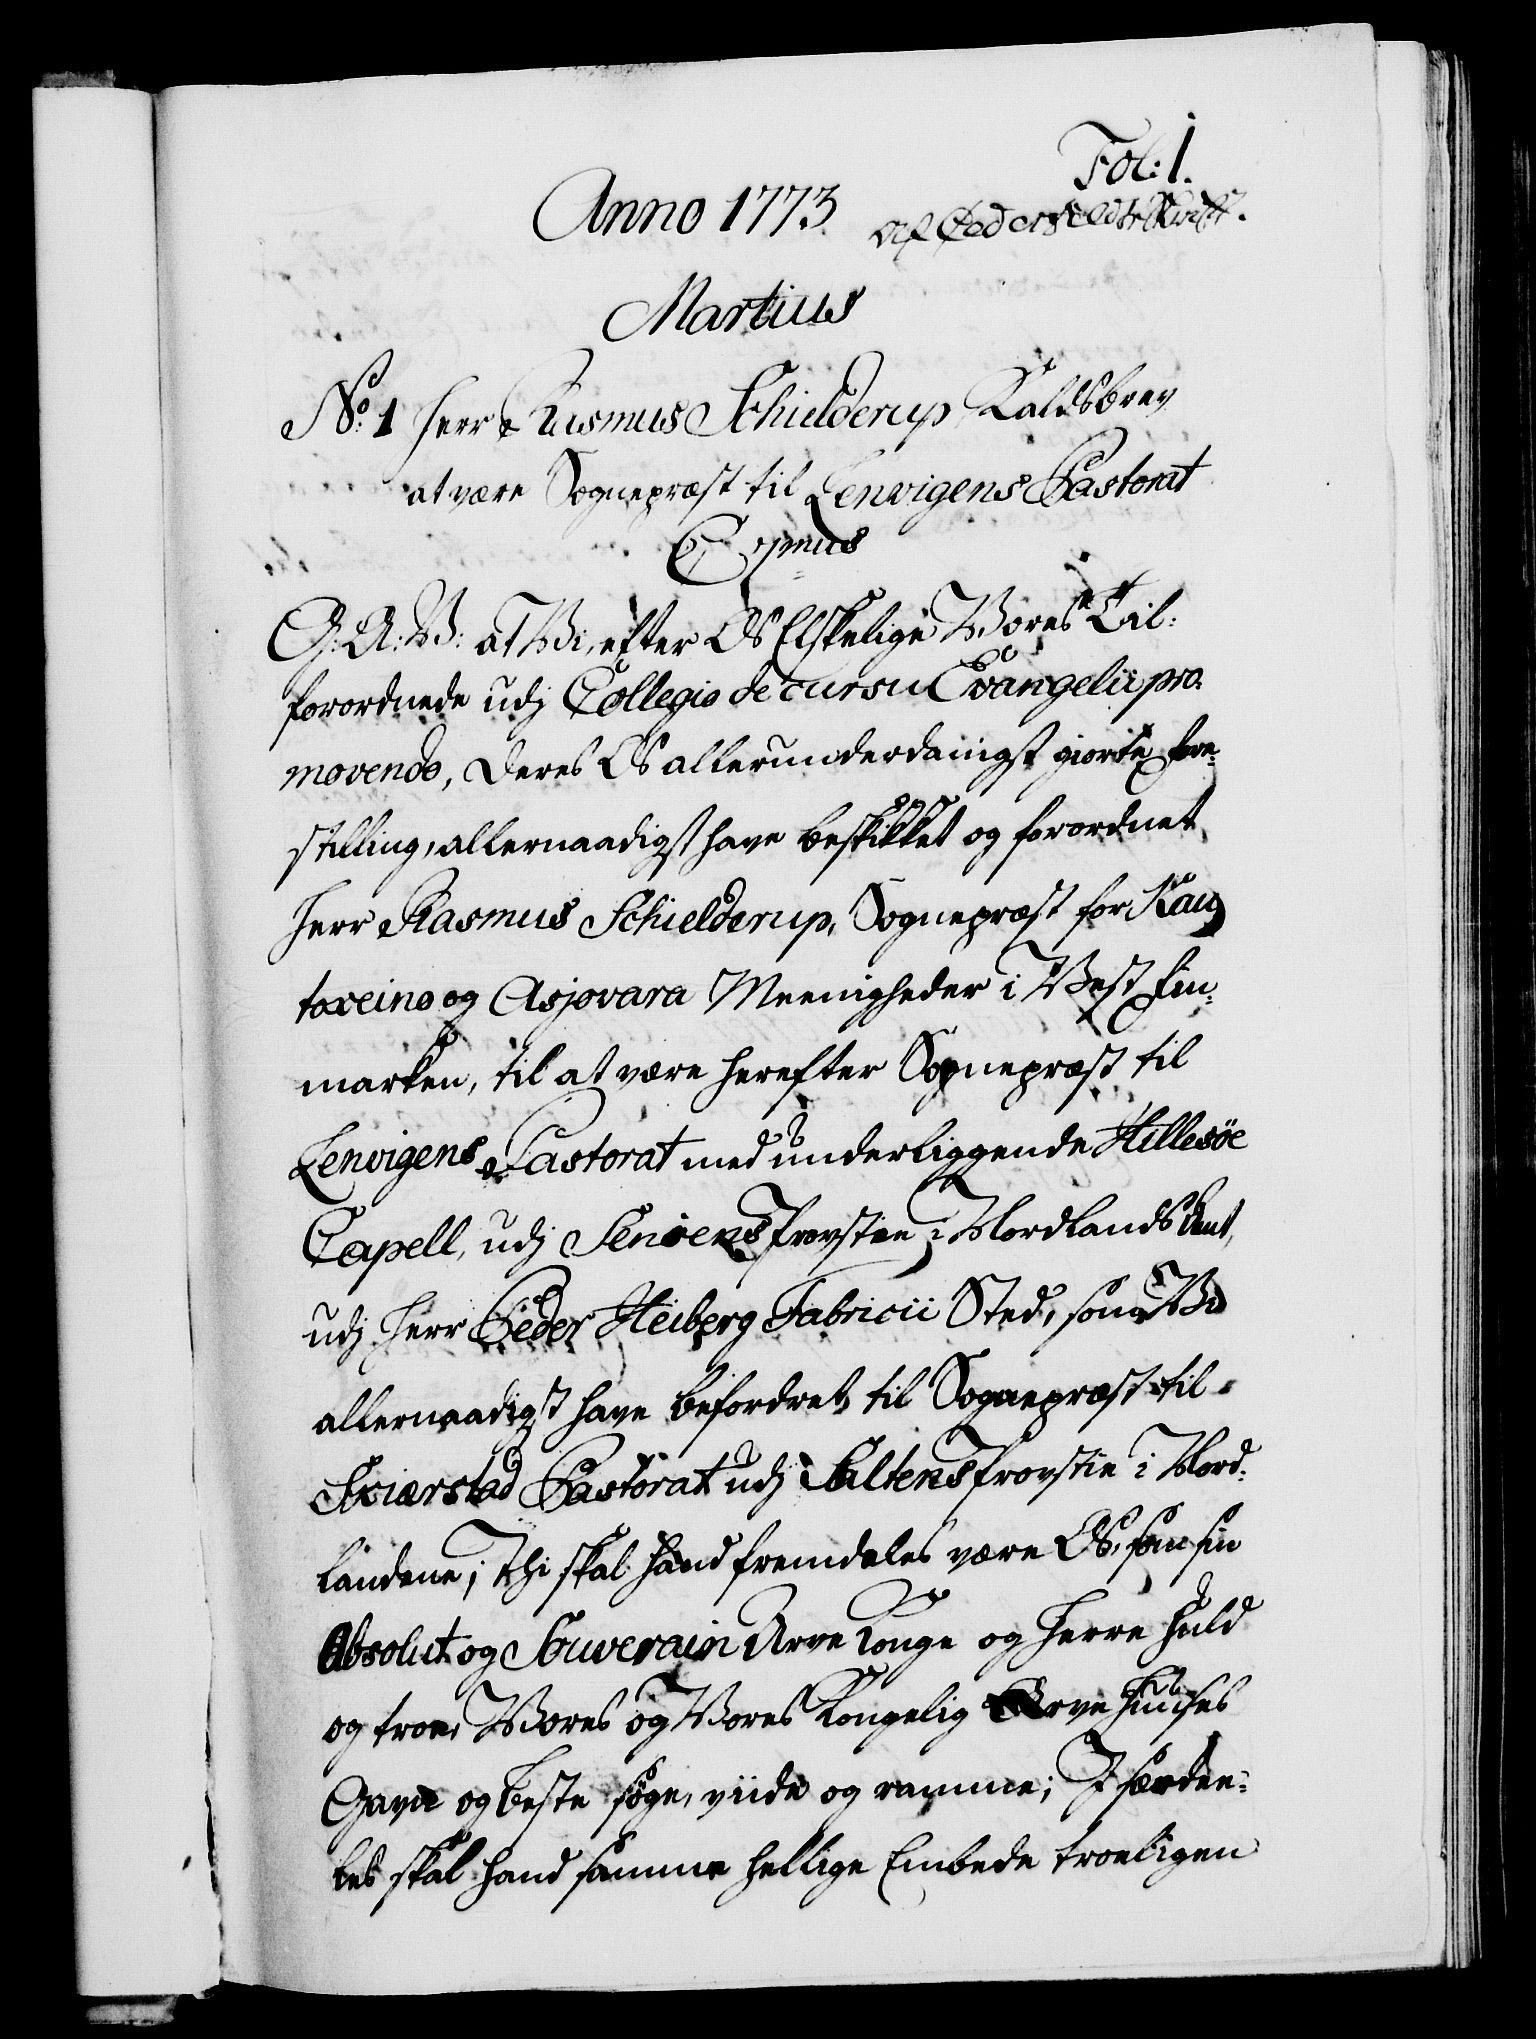 Fol: 1.
Anno 1773
Martius
No: 1 Herr Rasmus Schielderup Kaldsbrev
at være Sognepræst til Lenvigens Pastorat
C 7mus
G: A: V: at Vi, efter Os Elskelige Vores Til-
forordnede udj Collegio de cursu Evangelii pro-
movendo, deres Os allerunderdanigst giorte fore-
stilling, allernaadigst have beskikket og forordnet
Herr Rasmus Schielderup, Sognepræst for Kau-
toxeino og Asjovara Meenigheder i Vest Fin-
marken, til at være herefter Sognepræst til
Lenvigens Pastorat med underliggende Hillesøe
Capell, udj Senioens Provstie i Nordlands Amt,
udj Herr Peder Heiberg Fabricii Sted, som Vi
allernaadigst have befordret til Sognepræst til
Skiærstad Pastorat udj Saltens Provstie i Nord-
landene; Thi skal hand fremdeles være Os, som sin
Absolut og Souverain Arve Konge og Herre huld
og troe, Vores og Vores Kongelig Arve Huuses
Gavn og beste søge, viide og ramme; I særdee-
les skal hand samme hellige Embede troeligen